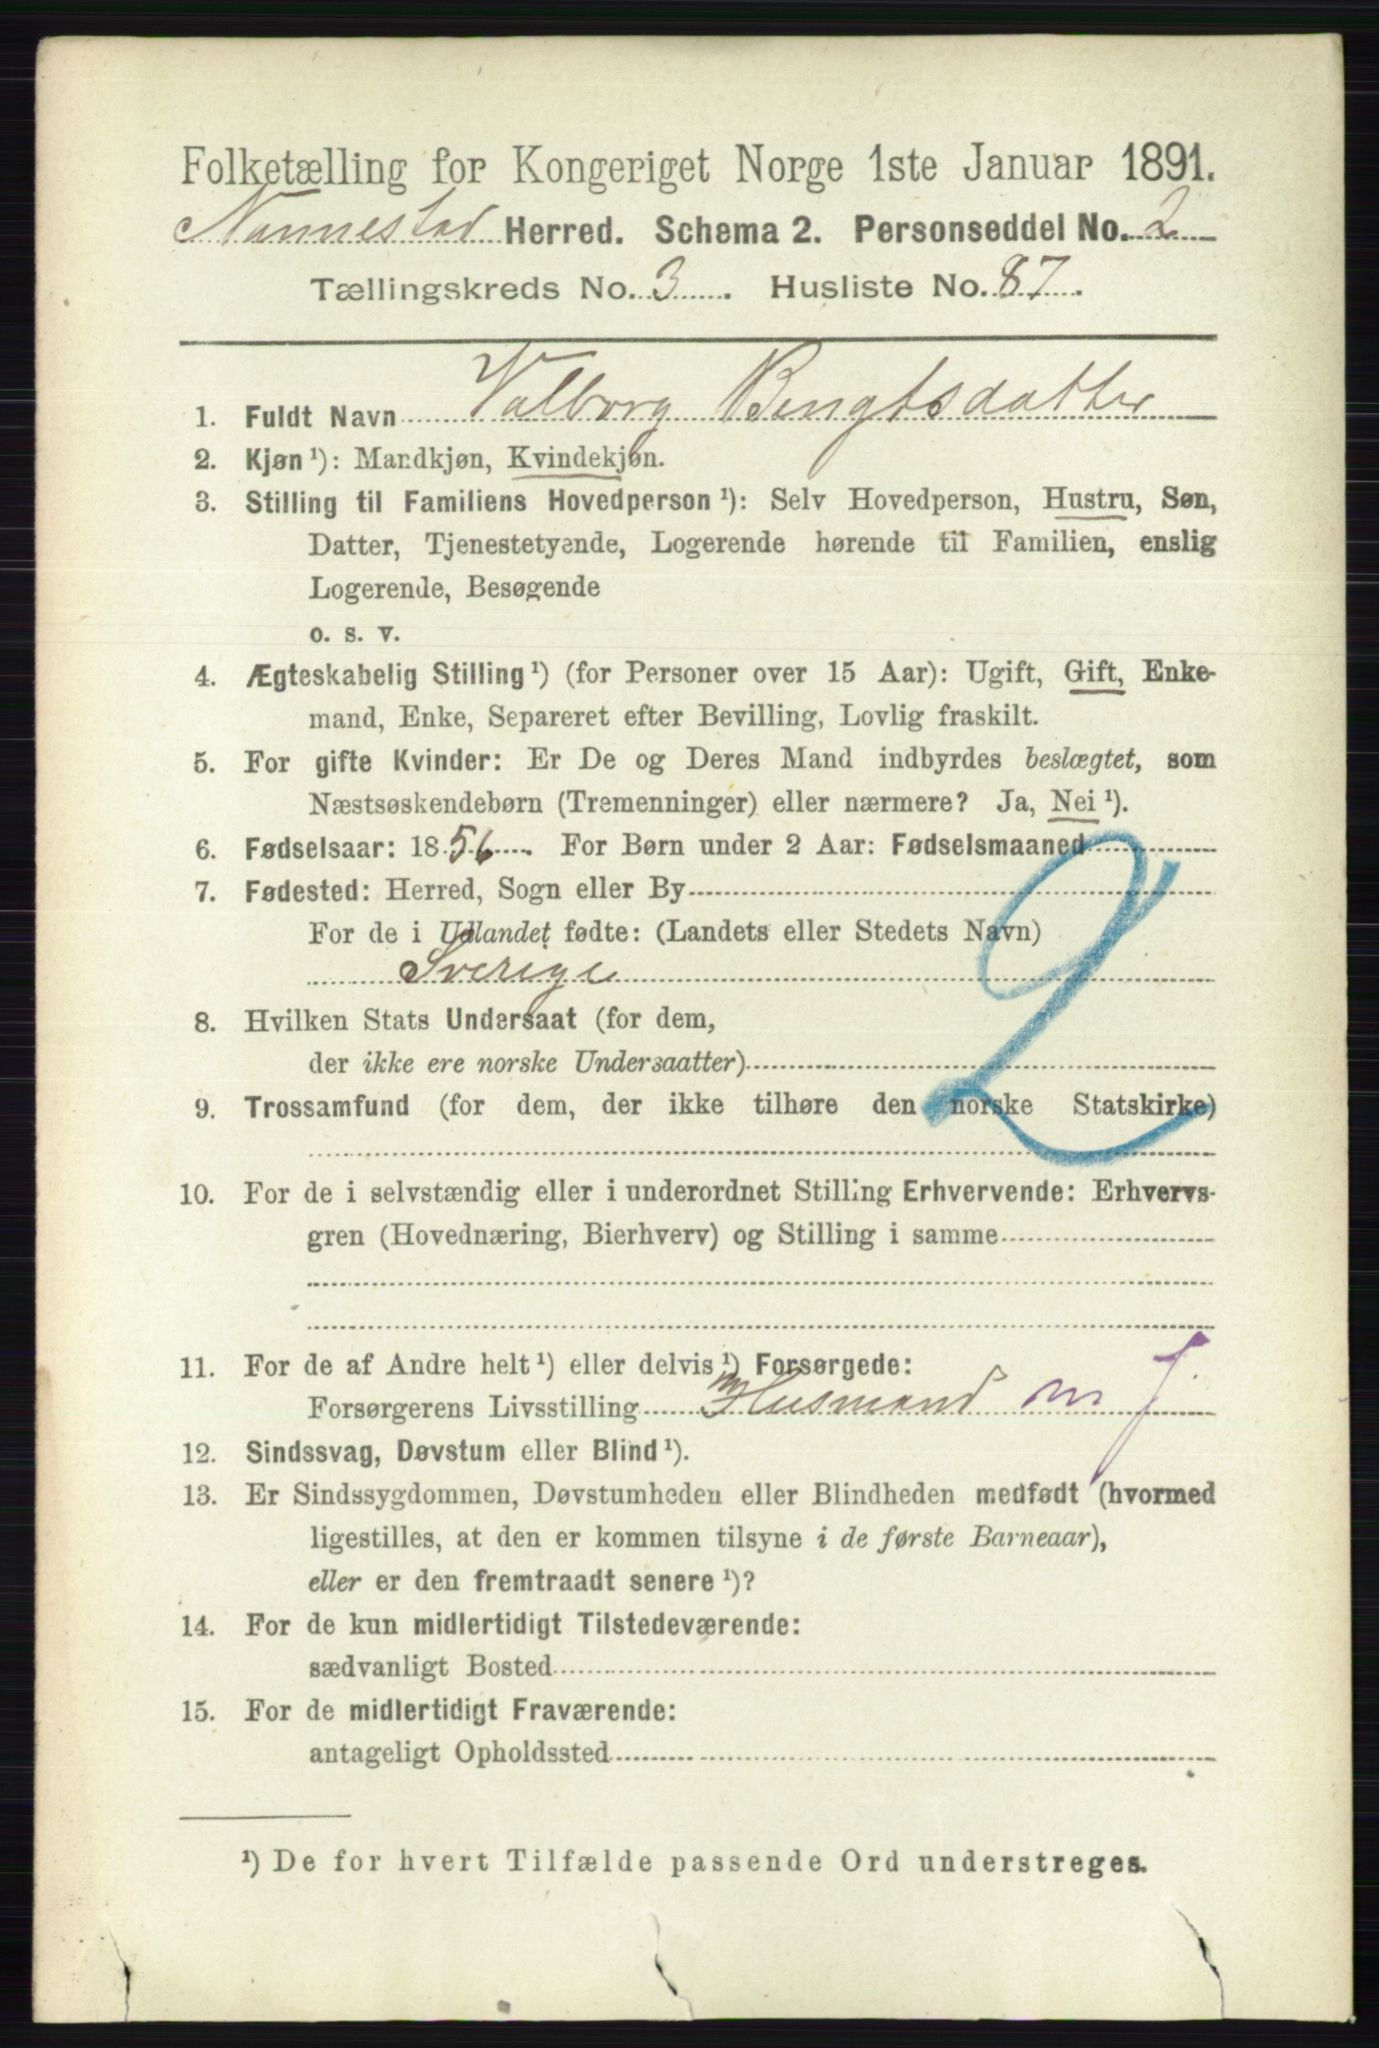 Folketælling for Kongeriget Norge 1ste Januar 1891.
Nannestad Herred. Schema 2. Personseddel No. 2
Tællingskreds No. 3. Husliste No. 87.
1. Fuldt Navn Valborg Bengtsdatter
2. Kjøn ¹): Mandkjøn, Kvindekjøn.
3. Stilling til Familiens Hovedperson ¹): Selv Hovedperson, Hustru, Søn,
Datter, Tjenestetyende, Logerende hørende til Familien, enslig
Logerende, Besøgende
o. s. v.
4. Ægteskabelig Stilling ¹) (for Personer over 15 Aar): Ugift, Gift, Enke-
mand, Enke, Separeret efter Bevilling, Lovlig fraskilt.
5. For gifte Kvinder: Er De og Deres Mand indbyrdes beslægtet, som
Næstsøskendebørn (Tremenninger) eller nærmere? Ja, Nei ¹).
6. Fødselsaar: 1856. For Børn under 2 Aar: Fødselsmaaned
7. Fødested: Herred, Sogn eller By
For de i Udlandet fødte: (Landets eller Stedets Navn)
Sverige
2
8. Hvilken Stats Undersaat (for dem,
der ikke ere norske Undersaatter)
9. Trossamfund (for dem, der ikke tilhøre den norske Statskirke)
10. For de i selvstændig eller i underordnet Stilling Erhvervende: Erhvervs-
gren (Hovednæring, Bierhverv) og Stilling i samme
11. For de af Andre helt ¹) eller delvis ¹) Forsørgede:
Forsørgerens Livsstilling Husmand m J
12. Sindssvag, Døvstum eller Blind ¹).
13. Er Sindssygdommen, Døvstumheden eller Blindheden medfødt (hvormed
ligestilles, at den er kommen tilsyne i de første Barneaar),
eller er den fremtraadt senere ¹)?
14. For de kun midlertidigt Tilstedeværende:
sædvanligt Bosted
15. For de midlertidigt Fraværende:
antageligt Opholdssted
¹) De for hvert Tilfælde passende Ord understreges.